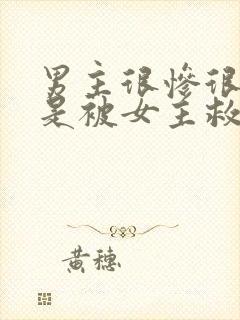 男主很慘很
是被女主救
黃穗